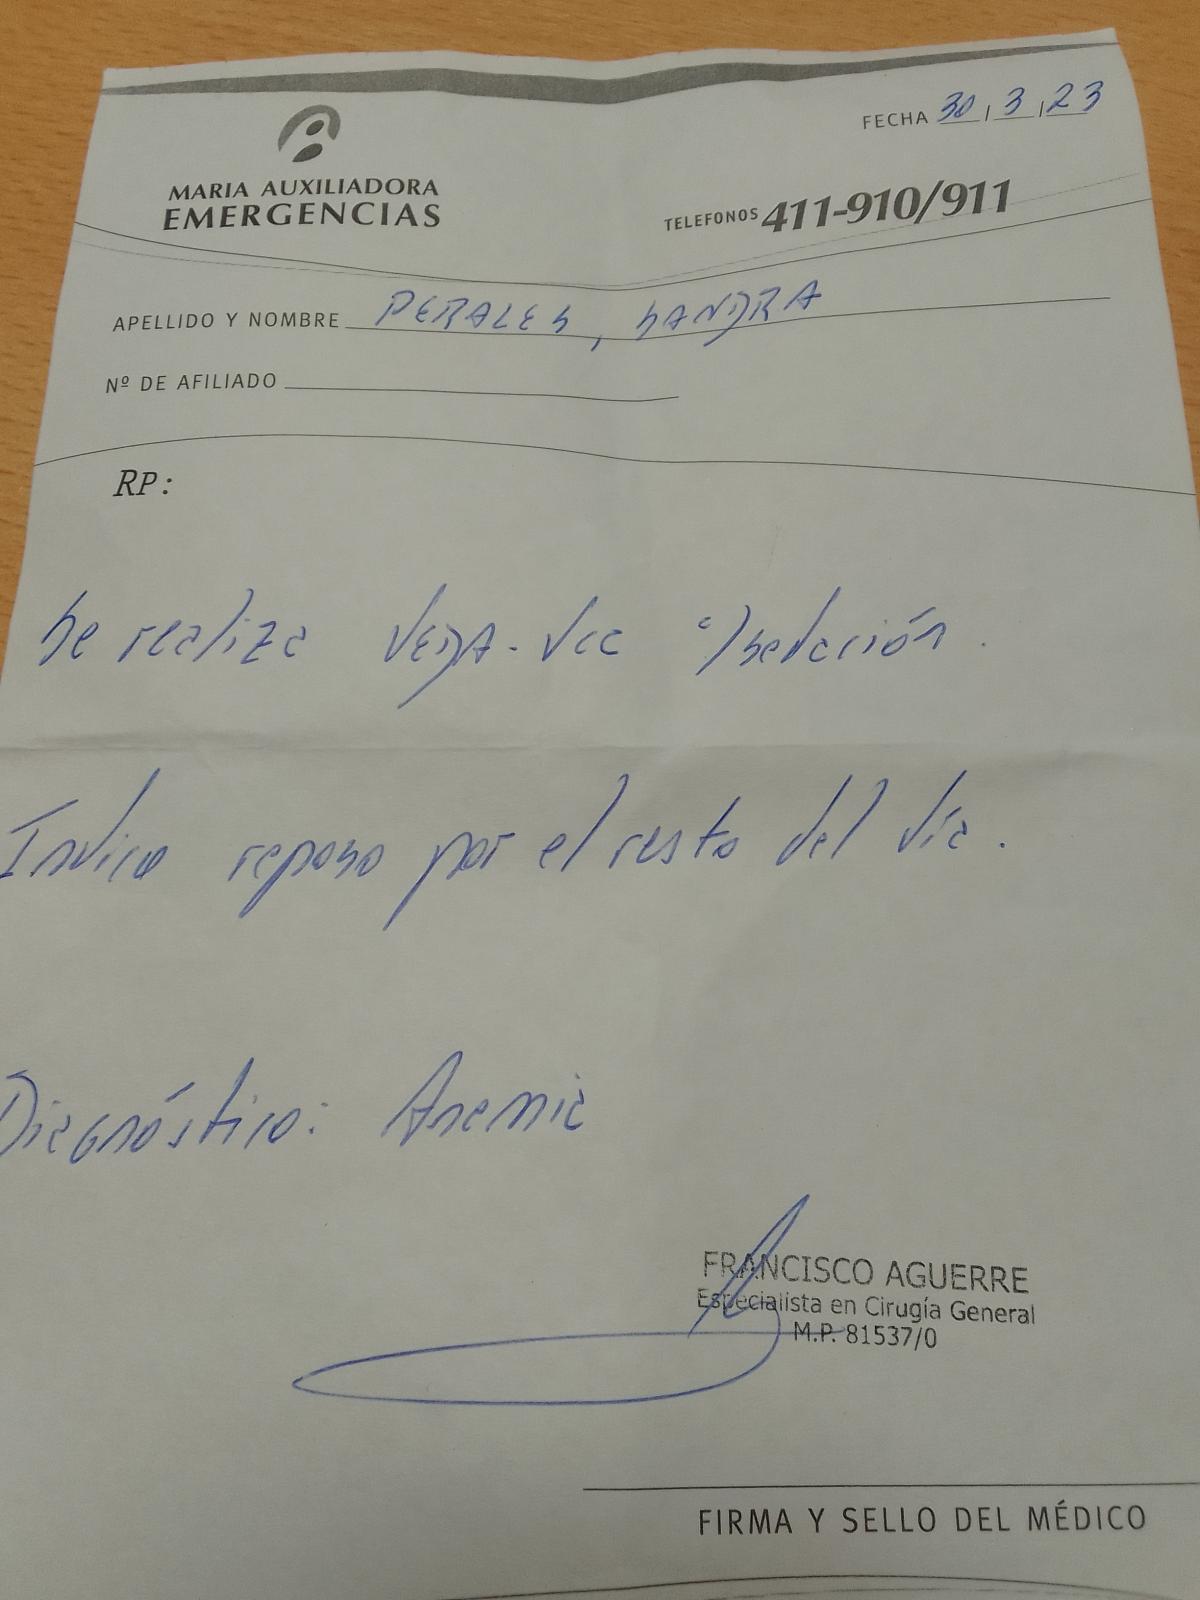 FECHA 30/3/23
MARIA AUXILIADORA
EMERGENCIAS
TELEFONOS 411-910/911
APELLIDO Y NOMBRE PERALES, SANDRA
Nº DE AFILIADO
RP:
Se realiza VEDA-Vcc c/sedación.
Indico reposo por el resto del día.
Diagnóstico: Anemia
FRANCISCO AGUERRE
Especialista en Cirugía General
M.P. 81537/0
FIRMA Y SELLO DEL MÉDICO